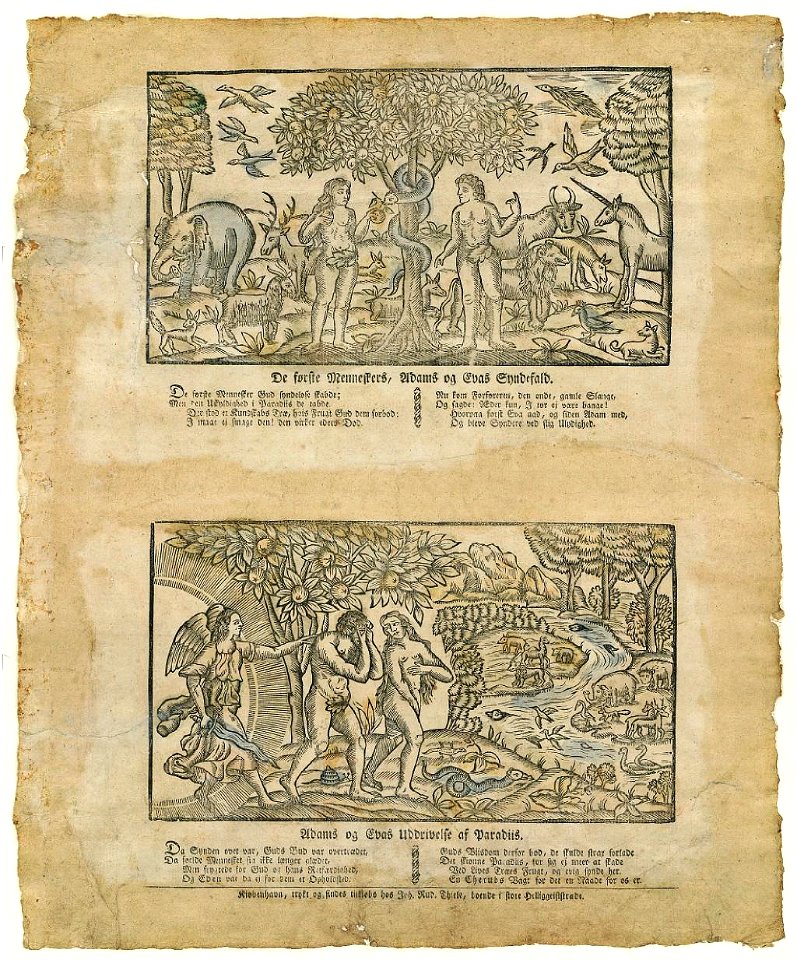 De første Menneskers, Adams og Evas Syndefald.
De første Mennesker Gud syndeløse skabde;
Men den Uskyldighed i Paradiis de tabde.
Der stod et Kundskabs Træ, hvis Frugt Gud dem forbød:
I maae ej smage den! den virker eders Død.
Nu kom Forføreren, den onde, gamle Slange,
Og sagde: Æder kun, I tør ej være bange!
Hvorpaa først Eva aad, og siden Adam med,
Og bleve Syndere ved slig Ulydighed.
Adams og Evas Uddrivelse af Paradiis.
Da Synden øvet var, Guds Bud var overtrædet,
Da følde Mennesket sig ikke længer glædet,
Men frygtede for Gud og hans Retfærdighed,
Og Eden var da ej for dem et Opholdsted.
Guds Viisdom derfor bød, de skulde strax forlade
Det skiønne Paradiis, for sig ej meer at skade
Ved Livets Træes Frugt, og evig synde her.
En Cherubs Vagt for det en Naade for os er.
Kiøbenhavn, trykt og findes tilkiøbs hos Joh. Rud. Thiele, boende i store Helliggeiststræde.